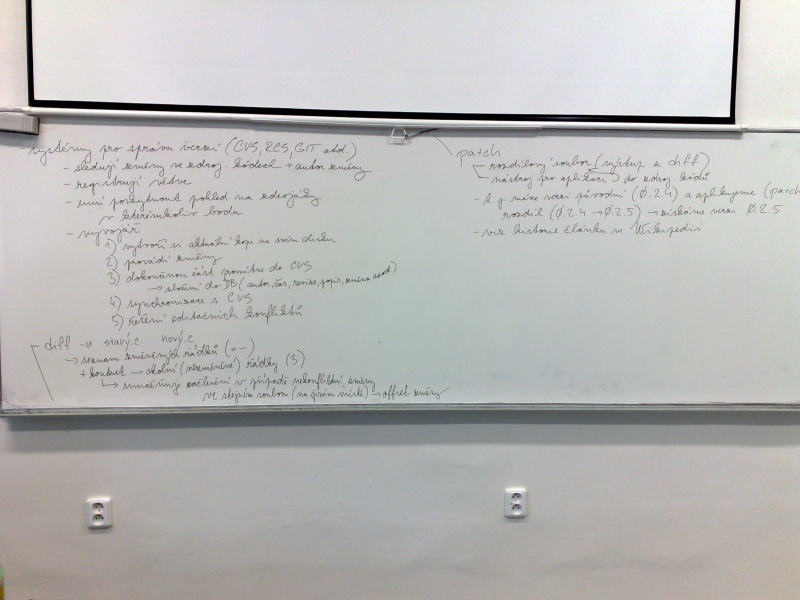 - systémy pro správu verzí (CVS, RCS, GIT atd.)
- sledují změny ve zdroj. kódech + autor změny
- registrují větve
- umí poskytnout pohled na zdrojáky
v kterémkoliv bodu
- vývojář
1) vytvoří si aktuální kopi na svém disku
2) provádí změny
3) dokončenou část promítne do CVS
→ uložení do DB (autor, čas, revize, popis, změna, atd)
4) synchronizace s CVS
5) řešení editačních konfliktů
diff -u starý.c nový.c
→ seznam změněných řádků (+-)
+ kontext → okolní (nezměněné) řádky (3)
↳ umožňuje začlenění v případě nekonfliktní změny
ve stejném souboru (na jiném místě) → offset změny
patch
- rozdílový soubor (výstup z diff)
nástroj pro aplikaci do zdroj. kódů
- t.j. máme verzi původní (0.2.4) a aplikujeme (patch
rozdíl (0.2.4 → 0.2.5) → získáme verzi 0.2.5
- viz historie článku ve Wikipedii